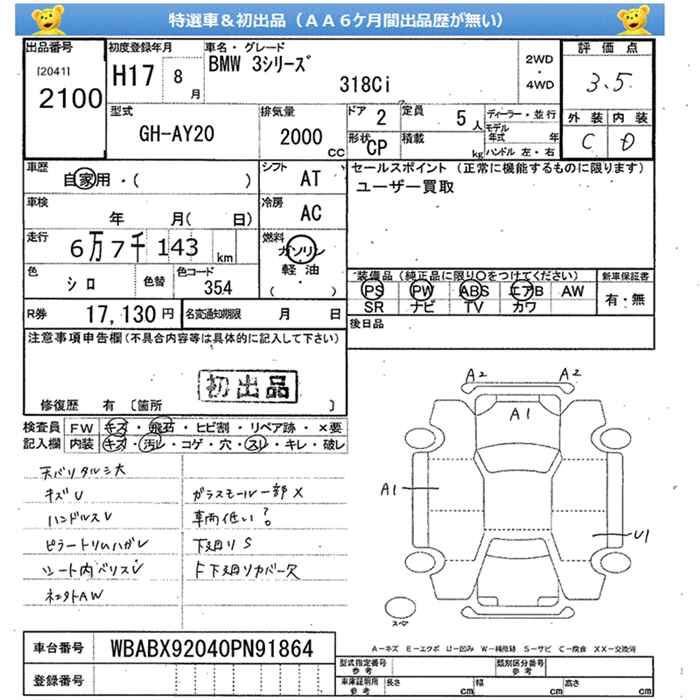 特選車&初出品（AA6ケ月間出品歴が無い）
出品番号 初度登録年月 車名・グレード 評価点
[2041] H17 8月 BMW 3シリーズ 2WD・4WD 3.5
2100 318Ci
型式 排気量 ドア 2 定員 5人 ディーラー・並行 外装 内装
GH-AY20 2000cc 形状 CP 積載 kg モデル年式 年 C D
ハンドル 左・右
車歴 自家用・( ) シフト AT セールスポイント (正常に機能するものに限ります)
ユーザー買取
車検 年 月( 日) 冷房 AC
走行 6万7千143km 燃料 ガソリン
軽油
( )
色 シロ 色替 色コード 354 装備品 (純正品に限り○をつけてください) 新車保証書
PS PW ABS エアB AW 有・無
SR ナビ TV カワ
R券 17,130円 名変通知期限 月 日 後日品
注意事項申告欄(不具合内容等は具体的に記入して下さい)
初出品
修復歴 有 〔箇所 〕
検査員 FW キズ・飛石・ヒビ割・リペア跡・×要
記入欄 内装 キズ・汚レ・コゲ・穴・スレ・キレ・破レ
A2 A2
A1
A1
U1
天バリタルミ大
キズU ガラスモール一部X
ハンドルスレ 車両低い?
ピラートリムハガレ 下廻りS
シート内ベリスレ F下廻りカバー欠
ネクトAW
スペア
A-キズ E-エクボ U-凹み W-補修跡 S-サビ C-腐食 XX-交換済
車台番号 WBABX92040PN91864
型式指定番号 参考 類別区分番号 参考
登録番号 車庫証明用 参考 長さ cm 幅 cm 高さ cm